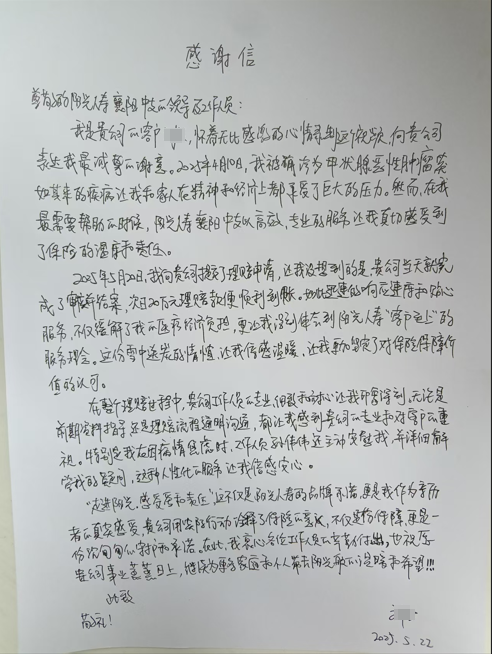 感谢信
尊敬的阳光人寿襄阳中支的领导及工作人员：
我是贵公司的客户，怀着无比感激的心情写这份，向贵公司
表达我最诚挚的谢意。2025年4月10日，我被确诊为甲状腺恶性肿瘤突
如其来的疾病让我和家人在精神和经济上都承受了巨大的压力。然而，在我
最需要帮助的时候，阳光人寿襄阳中支以高效、专业的服务让我真切感受到
了保险的温度和责任。
2025年5月20日，我向贵公司提交了理赔申请，让我没想到的是，贵公司当天就完
成了审核结案，次日20万元理赔款便顺利到账。如此迅速的响应速度和贴心
服务，不仅缓解了我的医疗经济负担，更让我深刻体会到阳光人寿“客户至上”的
服务理念。这份雪中送炭的情谊，让我倍感温暖，让我更加坚定了对保险保障价
值的认可。
在整个理赔过程中，贵公司工作人员的专业、细致和耐心让我印象深刻。无论是
前期资料指导，还是理赔流程透明沟通，都让我感到贵公司的专业和对客户的重
视。特别是我在因病情焦虑时，工作人员的伟伟还主动安慰我，并详细解
答我的疑问，这种人性化的服务让我倍感安心。
“走进阳光，感受爱和责任”这不仅是阳光人寿的品牌承诺，更是我作为亲历
者的真实感受，贵公司用实际行动诠释了保险的意义，不仅是份保障，更是一
份沉甸甸的守护和承诺。在此，我衷心感谢工作人员的辛苦付出，也祝愿
贵公司事业蒸蒸日上，继续为更多家庭和个人带去阳光般的温暖和希望!!!
此致
敬礼！
2025.5.22